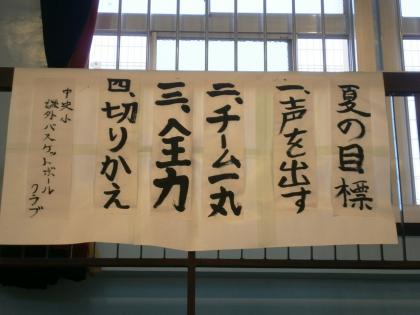 夏の目標
一、声を出す
二、チーム一丸
三、全力
四、切りかえ
中央小
課外バスケットボール
クラブ